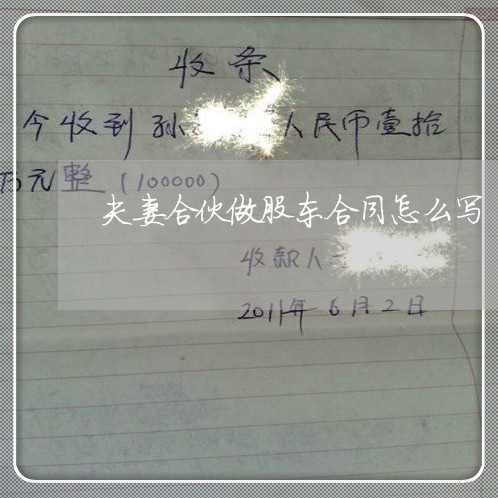 收条
今收到孙 人民币壹拾
万元整（100000）
夫妻合伙做股东合同怎么写
收款人
2011年6月2日